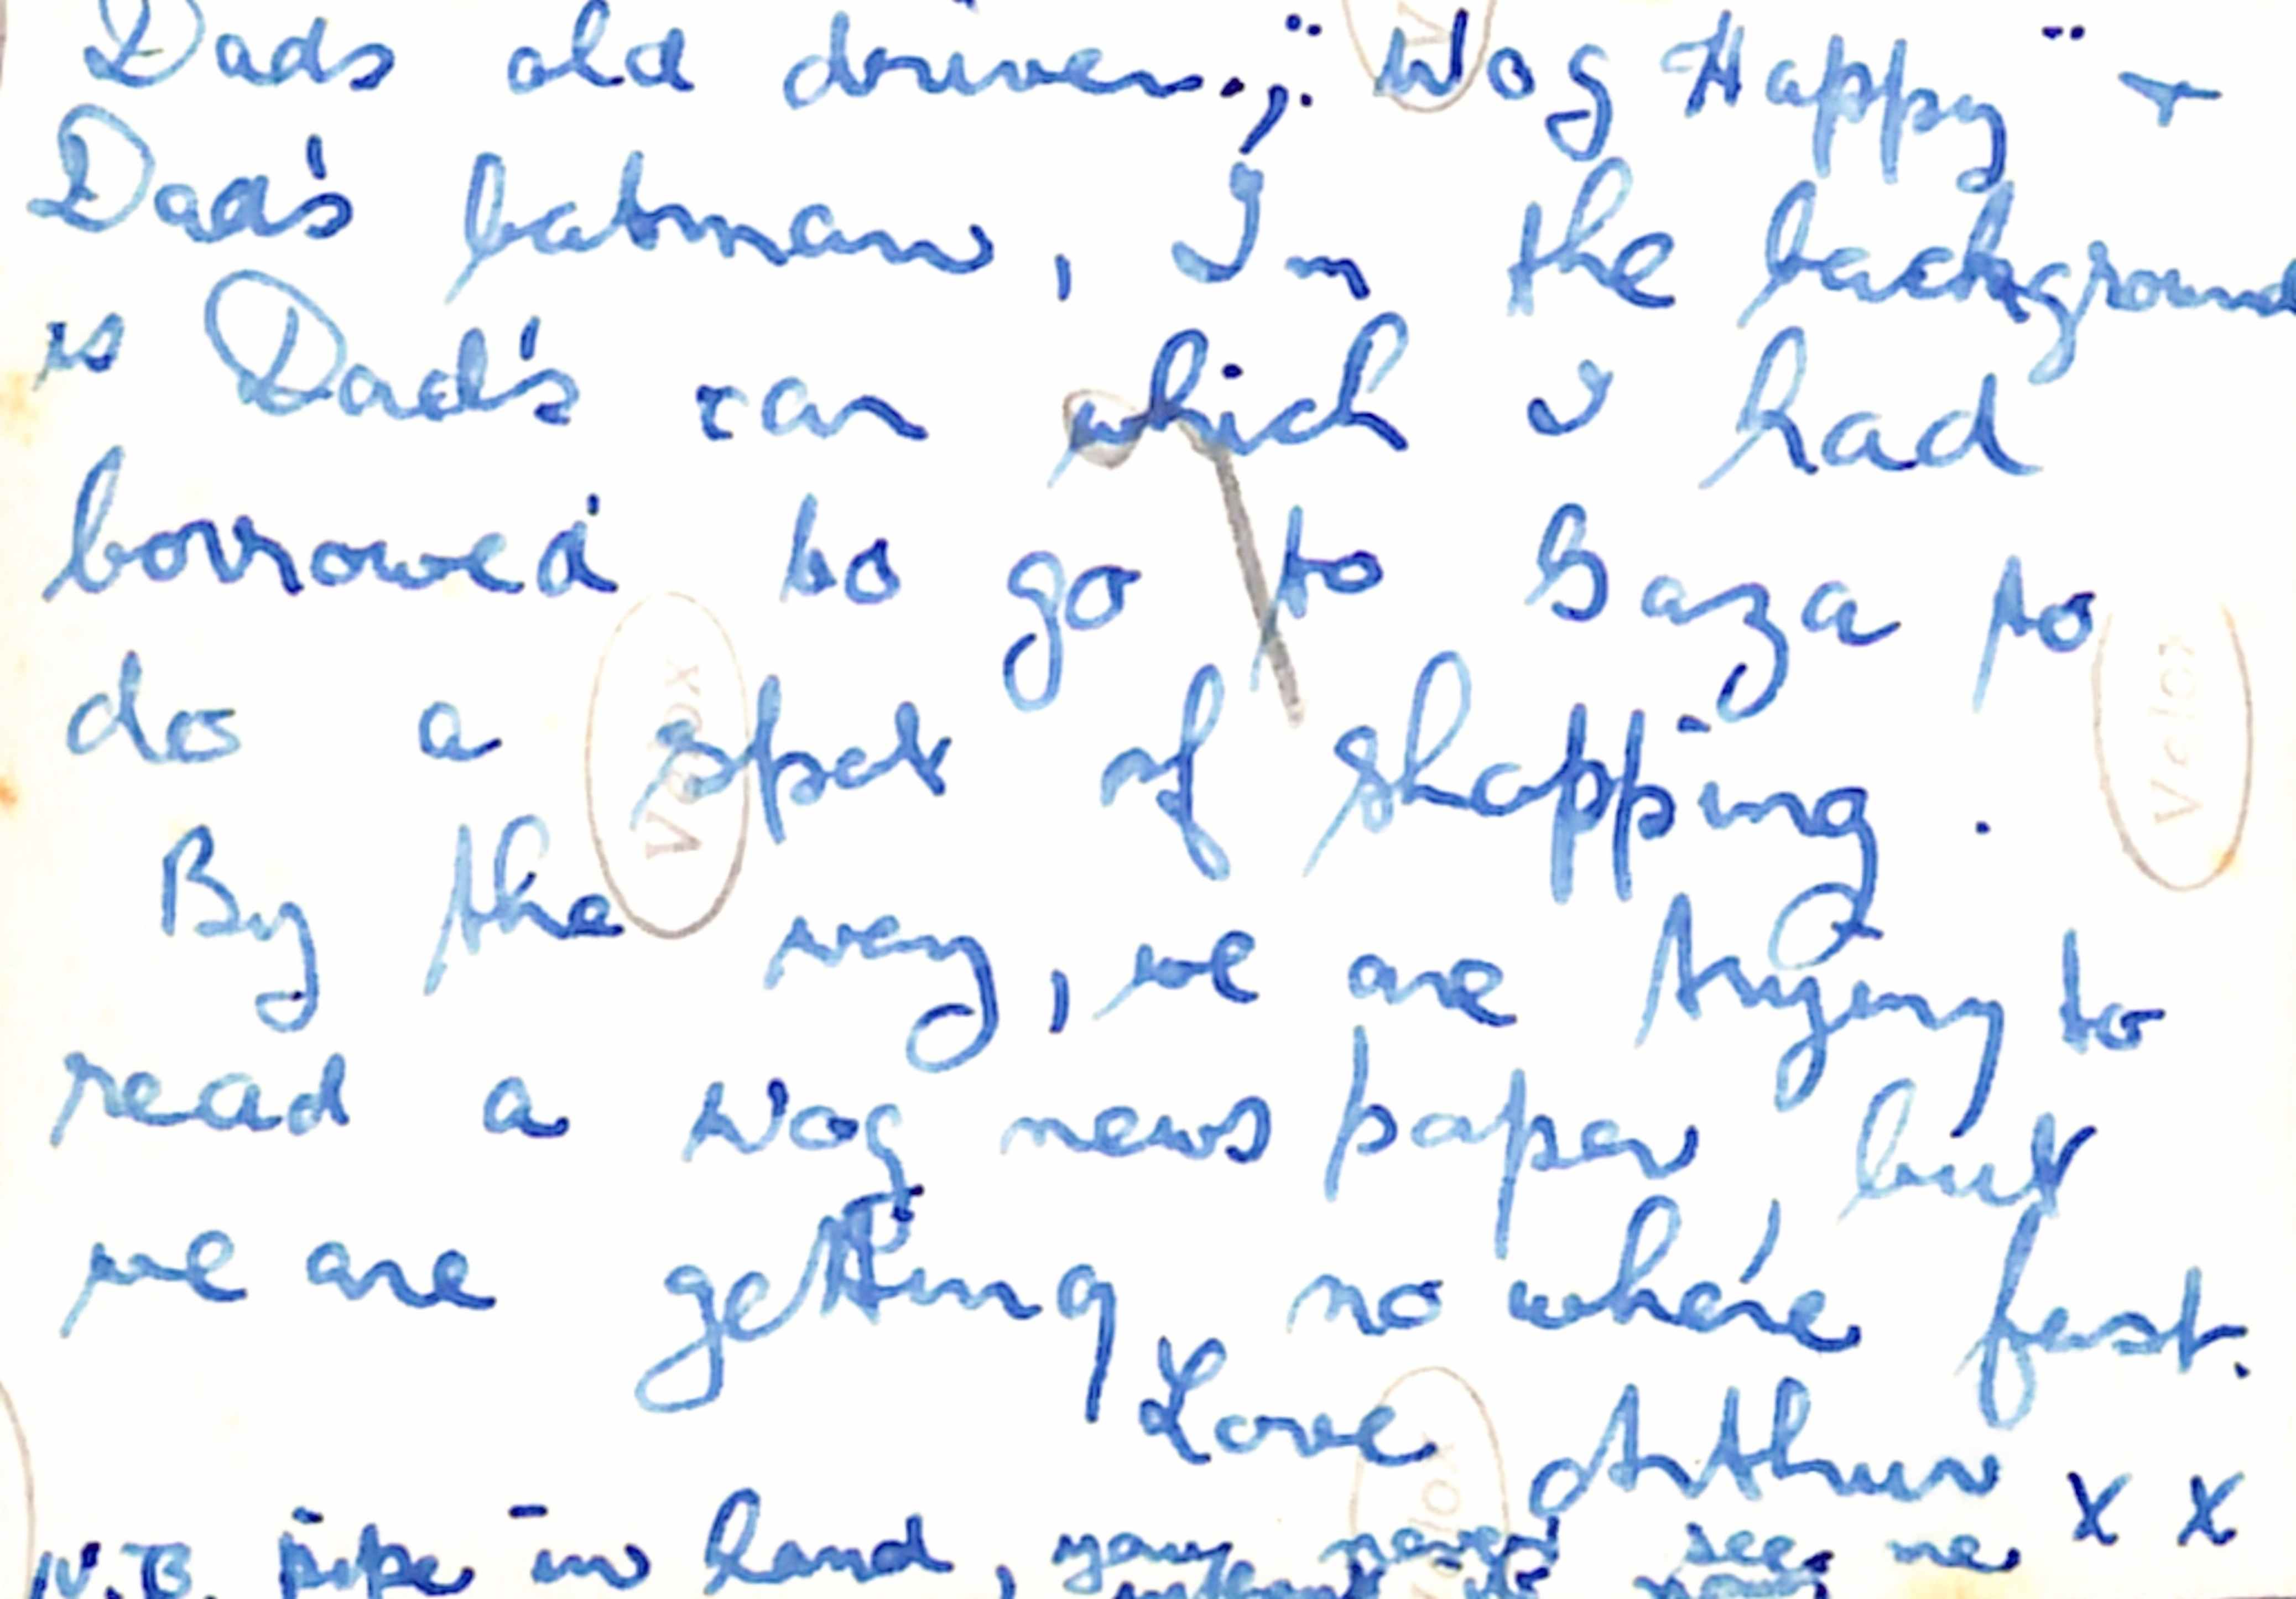 Dads old driver., "Wog Happy" +
Dad's batman, In the background
is Dad's car which I had
borrowed to go to Gaza to
do a spot of shopping.
By the way, we are trying to
read a Wog news paper but
we are getting no where fast.
Love Arthur x x
N.B. pipe in hand, you never see me
without it now
Velox
Velox